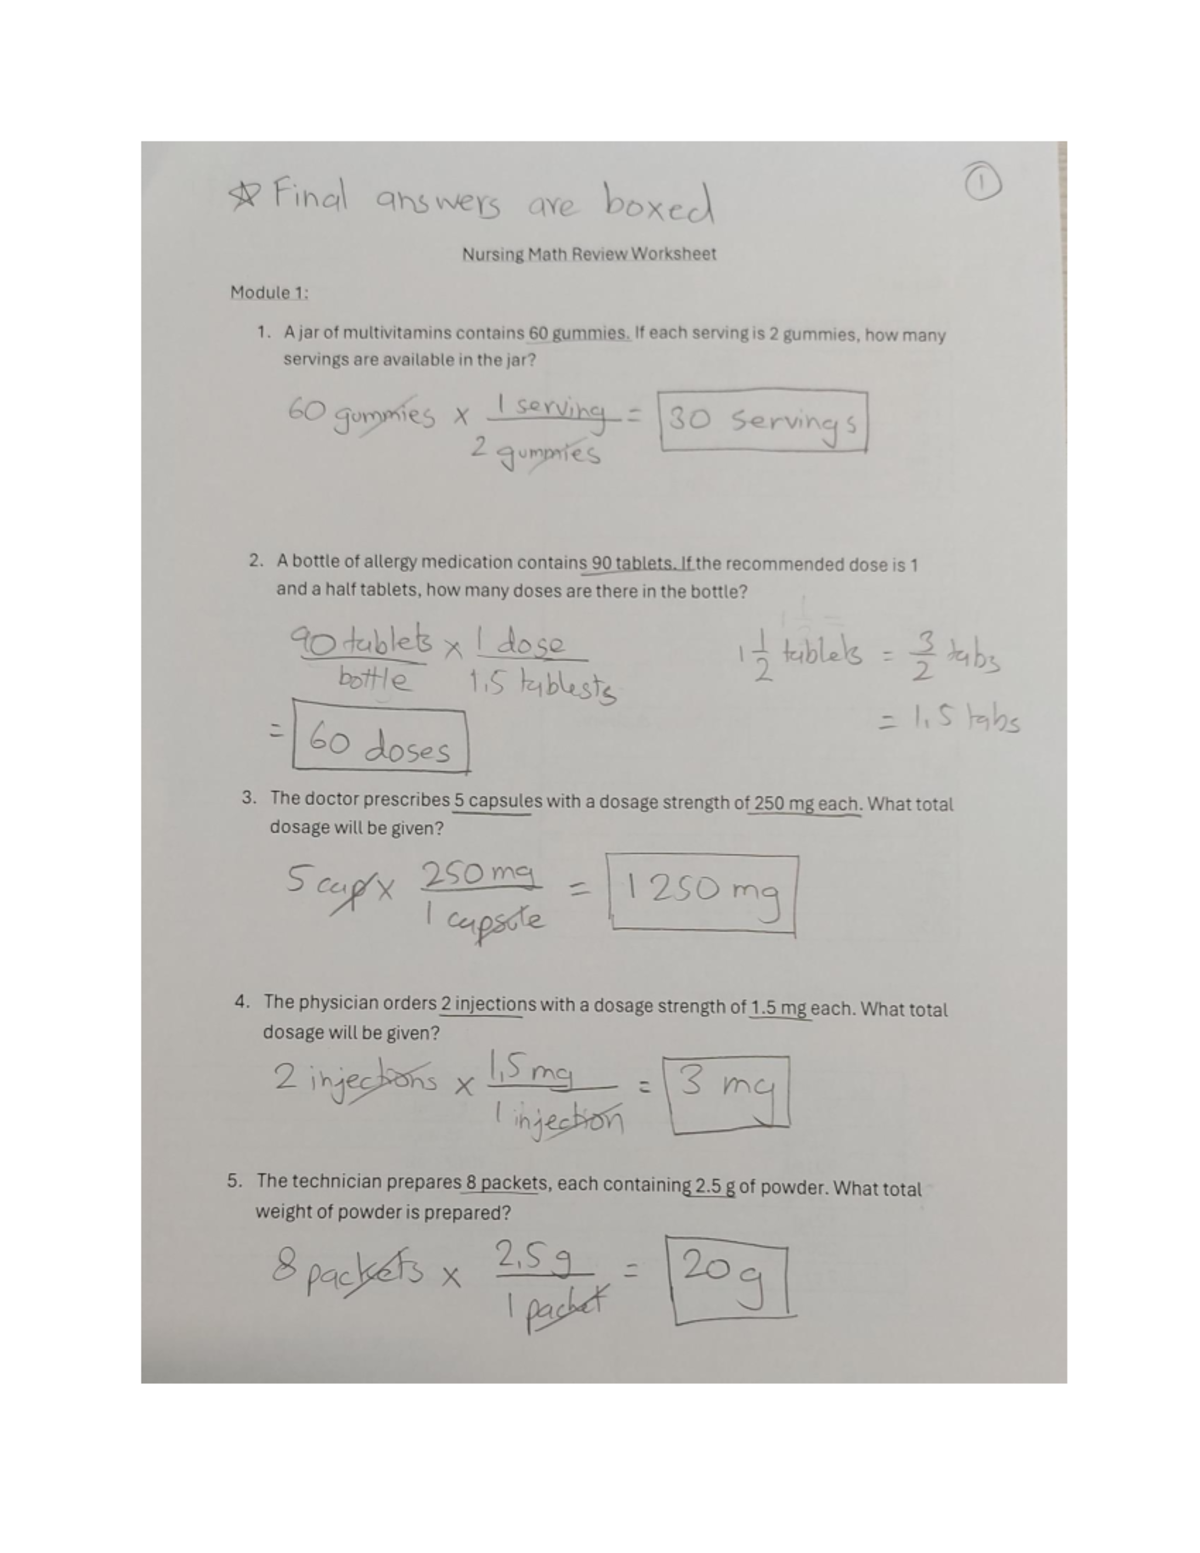 ☆ Final answers are boxed
1
Nursing Math Review Worksheet
Module 1:
1. A jar of multivitamins contains 60 gummies. If each serving is 2 gummies, how many
servings are available in the jar?
60 gummies x 1 serving =
2 gummies
30 servings
2. A bottle of allergy medication contains 90 tablets. If the recommended dose is 1
and a half tablets, how many doses are there in the bottle?
90 tablets x 1 dose
bottle 1.5 tablests
= 60 doses
1 1/2 tablets = 3/2 tabs
= 1.5 tabs
3. The doctor prescribes 5 capsules with a dosage strength of 250 mg each. What total
dosage will be given?
5 cap x 250 mg =
1 capsule
1250 mg
4. The physician orders 2 injections with a dosage strength of 1.5 mg each. What total
dosage will be given?
2 injections x 1,5 mg =
1 injection
3 mg
5. The technician prepares 8 packets, each containing 2.5 g of powder. What total
weight of powder is prepared?
8 packets x 2,5 g =
1 packet
20 g